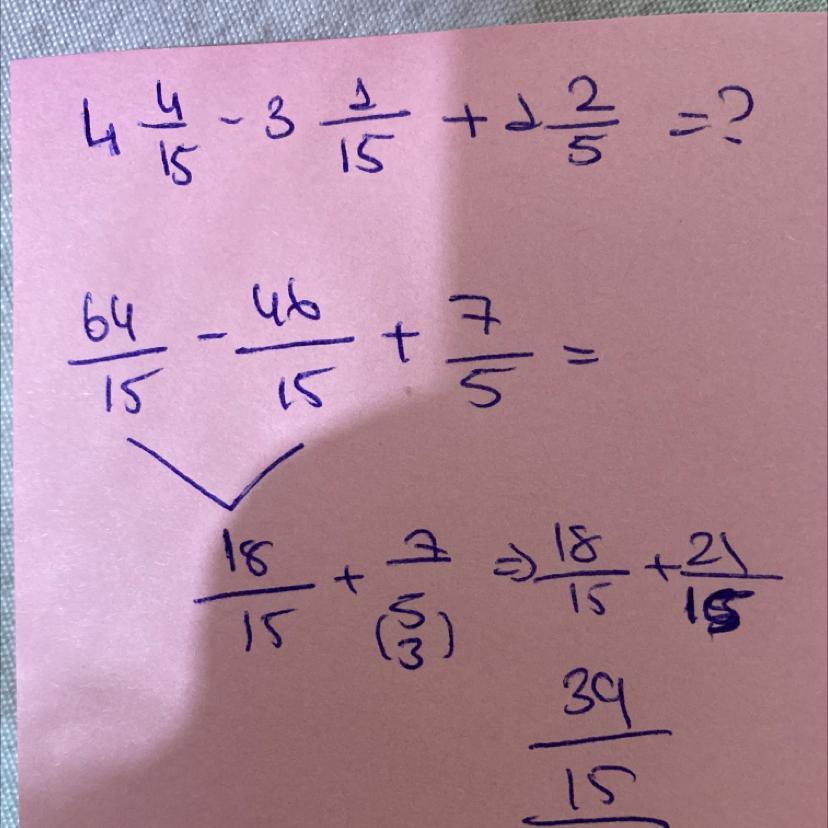 4 4/15 - 3 1/15 + 1 2/5 = ?
64/15 - 46/15 + 7/5 =
18/15 + 7/5 (3) ⇒ 18/15 + 21/15
39/15